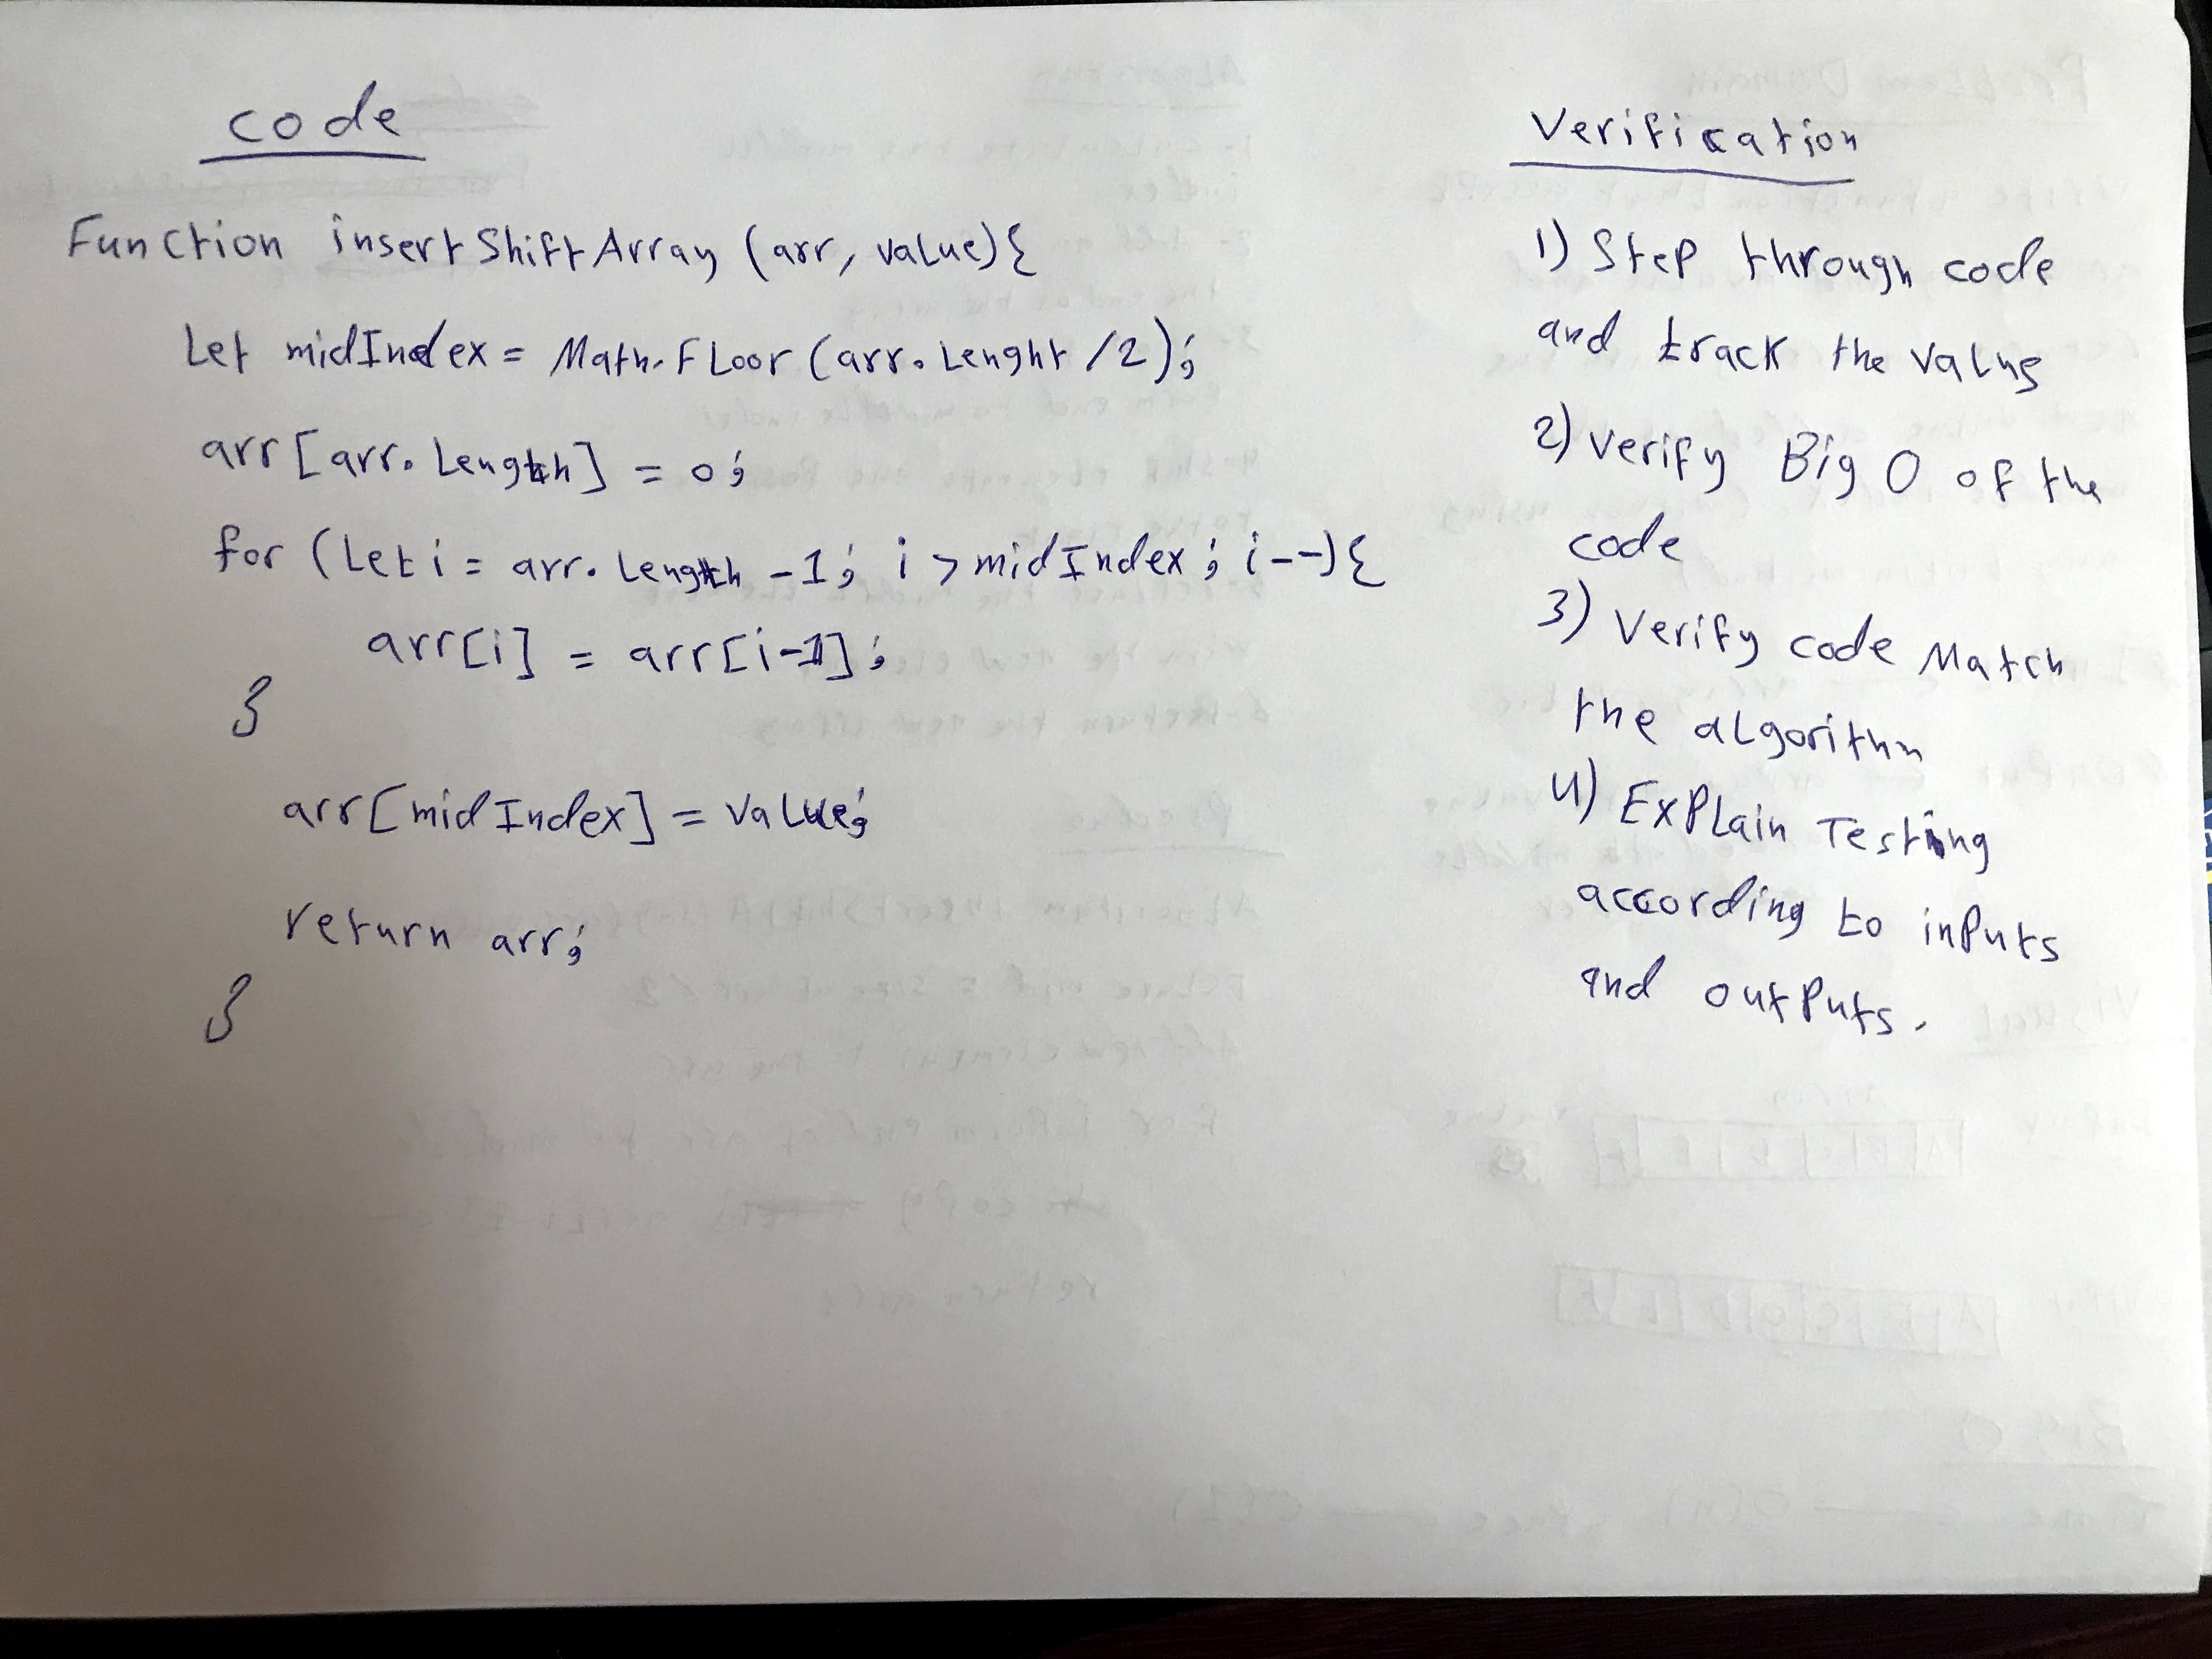 Code
Function insertShiftArray (arr, value){
Let midIndex = Math.Floor(arr.Lenght/2);
arr[arr.Length] = 0;
for (Let i = arr.Length -1; i > midIndex; i--){
arr[i] = arr[i-1];
}
arr[midIndex] = value;
return arr;
}
Verification
1) Step through code
and track the value
2) Verify Big O of the
code
3) Verify code Match
the algorithm
4) Explain Testing
according to inputs
and outputs.